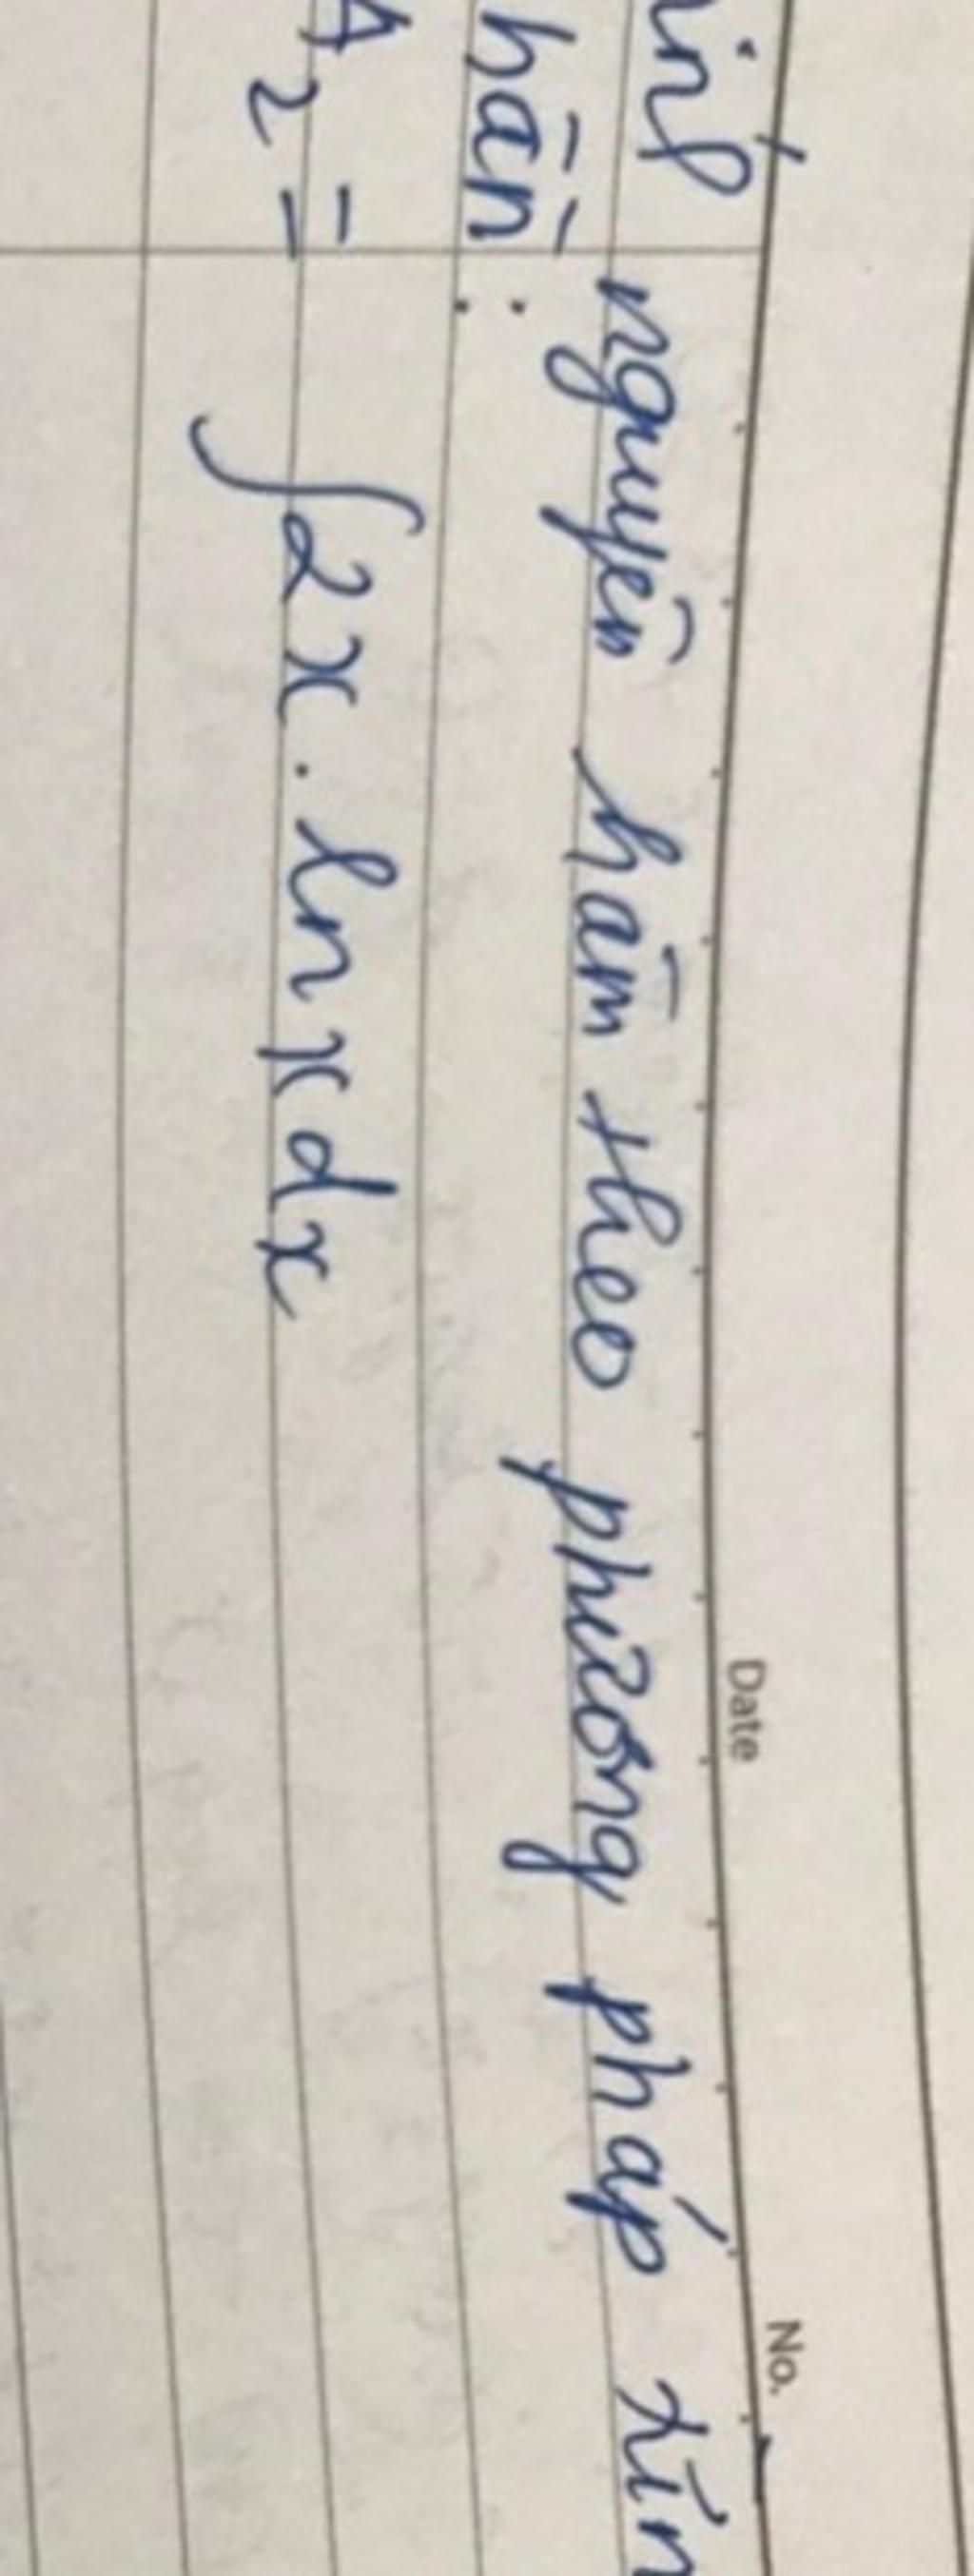 Date No.
nguyên hàm theo phương pháp
hần:
A₂ = ∫2x.lnxdx